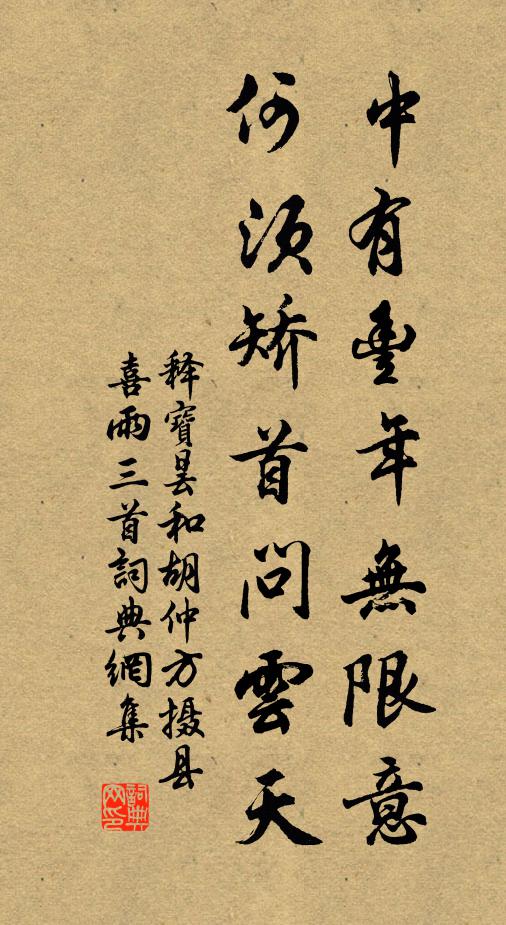 中有豐年無限意
何須矯首問雲天
释寶曇和胡仲方摄县
喜雨三首詞典網集
詞典網印